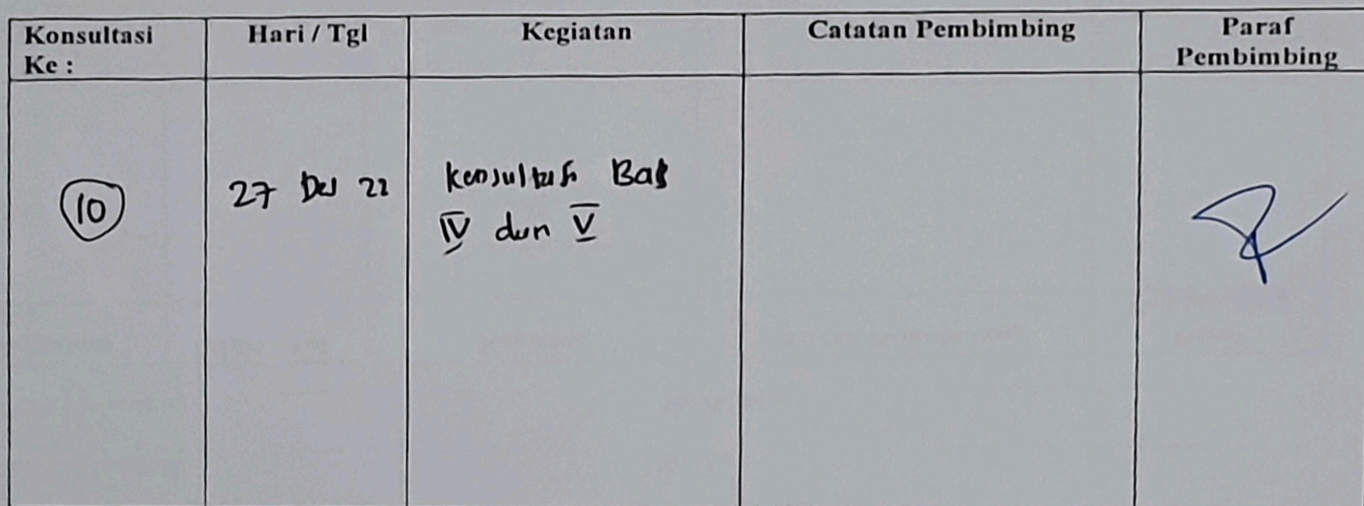 Konsultasi Ke :
Hari / Tgl
Kegiatan
Catatan Pembimbing
Paraf Pembimbing
10
27 Des 22
Konsultasi Bab
IV dan V